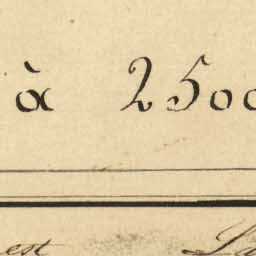 à 2500
est